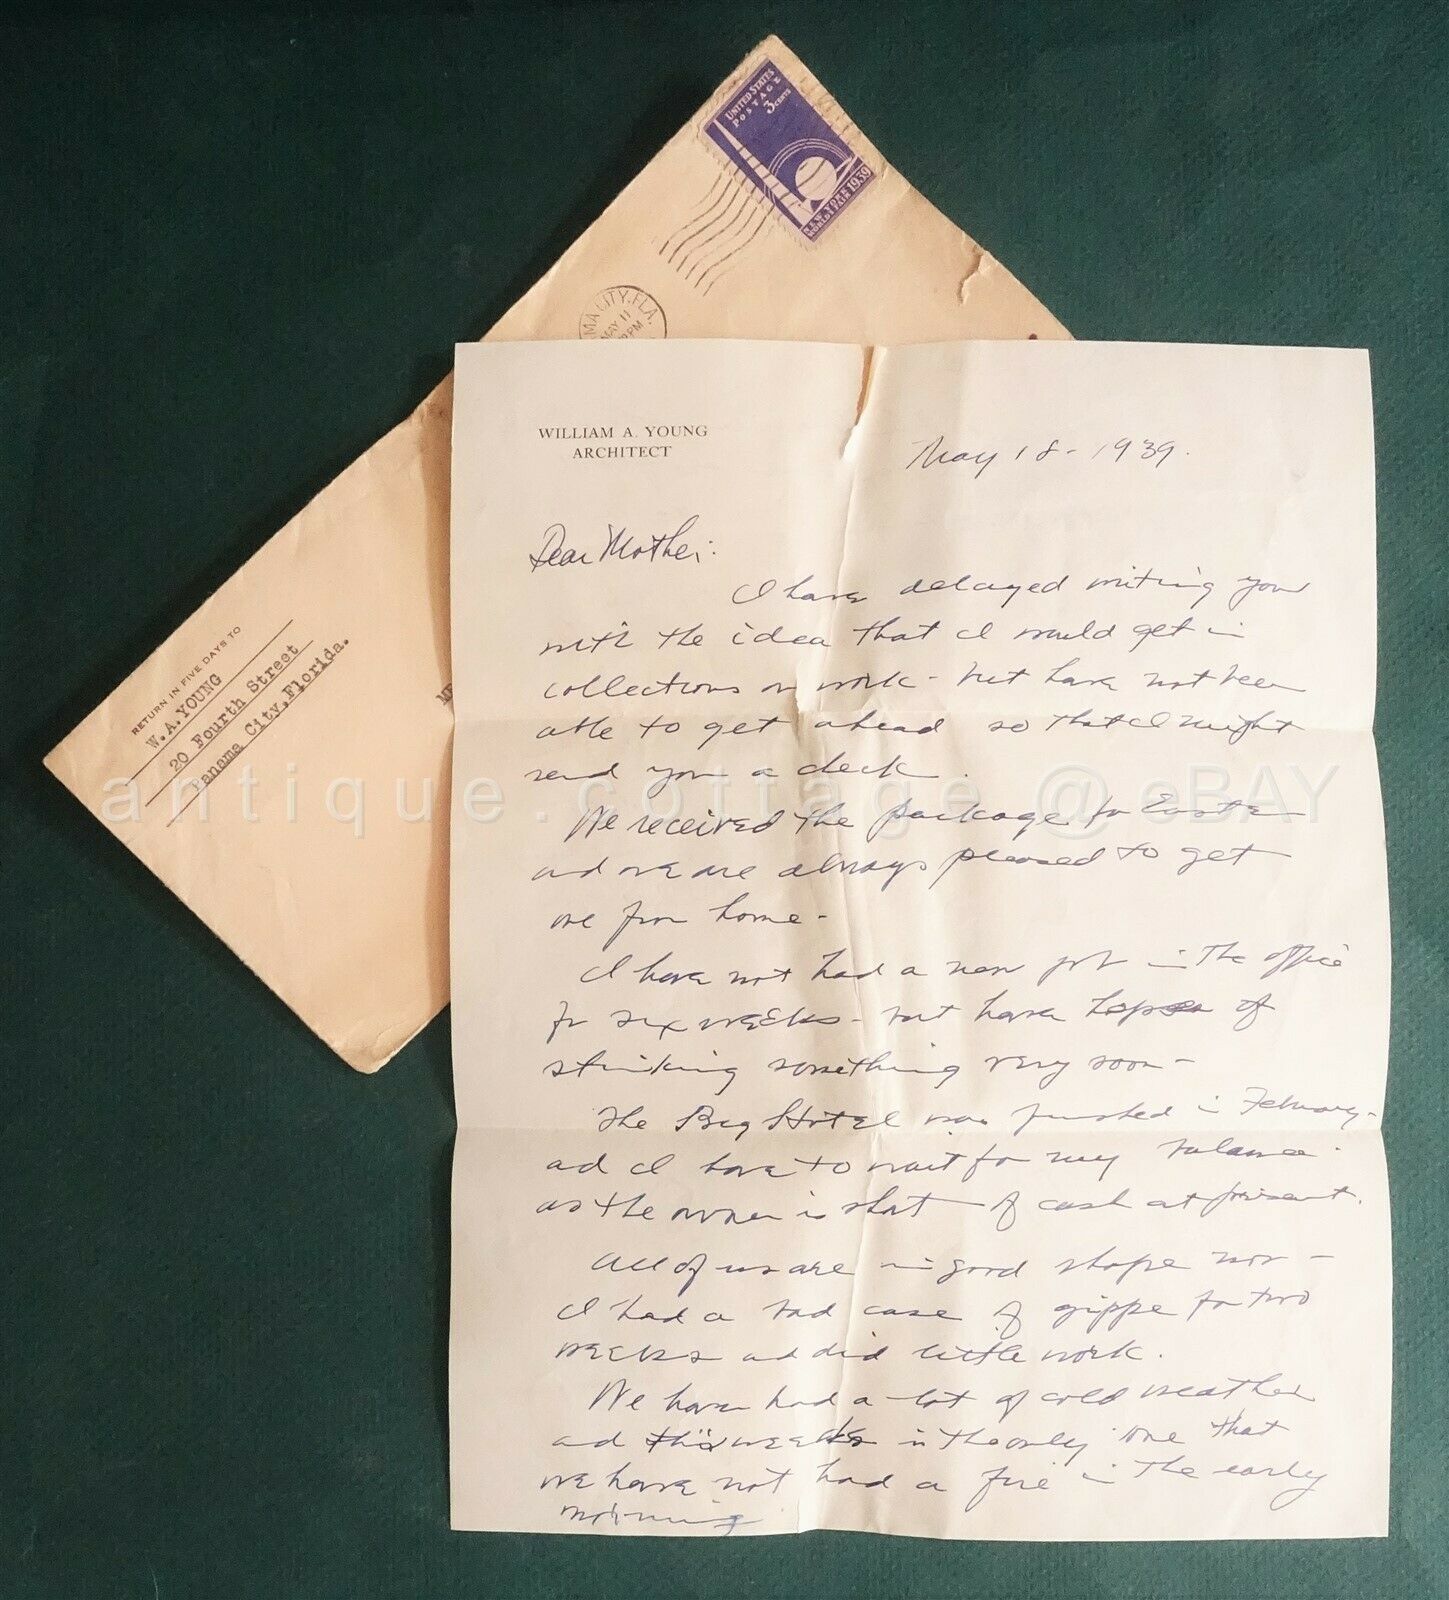 UNITED STATES
POSTAGE
3 CENTS
NEW YORK
WORLD'S FAIR 1939
MA CITY, FLA.
MAY 11
PM
RETURN IN FIVE DAYS TO
W.A.YOUNG
20 Fourth Street
Panama City, Florida.
WILLIAM A. YOUNG
ARCHITECT
May 18 - 1939.
Dear Mother:
I have delayed writing you
with the idea that I would get in
collections on work - but have not been
able to get ahead so that I might
send you a check.
We received the package for Easter
and we are always pleased to get
one from home -
I have not had a new job in the office
for six weeks - but have hopes of
striking something very soon -
The Big Hotel was finished in February -
and I have to wait for my balance
as the owner is short of cash at present.
All of us are in good shape now -
I had a bad case of grippe for two
weeks and did little work.
We have had a lot of cold weather
and this week is the only one that
we have not had a fire in the early
morning
antique.cottage@eBAY